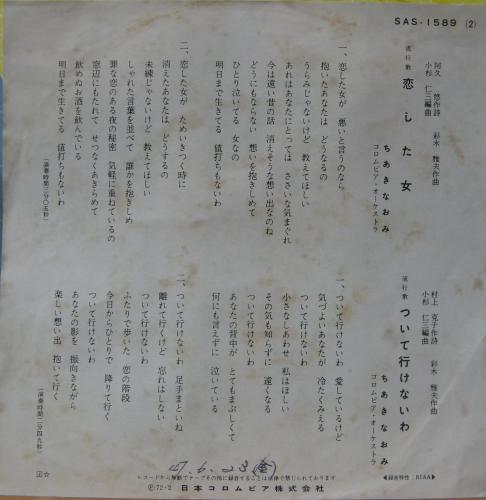 SAS-1589 (2)
流行歌
恋した女
阿久 悠作詩
小杉 仁三編曲
彩木 雅夫作曲
ちあきなおみ
コロムビア・オーケストラ
一、恋した女が 悪いと言うのなら
抱いたあなたは どうなるの
うらみじゃないけど 教えてほしい
あれはあなたにとっては ささいな気まぐれ
今は遠い昔の話 消えそうな想い出なのね
どうにもならない 想いを抱きしめて
ひとり泣いてる 女なの
明日まで生きてる 値打ちもないわ
二、恋した女が ためいきつく時に
消えたあなたは どうするの
未練じゃないけど 教えてほしい
しゃれた言葉を並べて 誰かを抱きしめ
罪な恋のある夜の秘密 気軽に重ねているの
窓辺にもたれて せつなくあきらめて
飲めぬお酒を飲んでいる
明日まで生きてる 値打ちもないわ
(演奏時間三分〇五秒)
流行歌
ついて行けないわ
村上 克子作詩
小杉 仁三編曲
彩木 雅夫作曲
ちあきなおみ
コロムビア・オーケストラ
一、ついて行けないわ 愛しているけど
気づよいあなたが 冷たくみえる
ついて行けないわ
小さなしあわせ 私はほしい
その気も知らずに 遠くなる
ついて行けないわ
あなたの背中が とてもまぶしくて
何にも言えずに 泣いている
二、ついて行けないわ 足手まといね
離れて行くけど 忘れはしない
ついて行けないわ
ふたりで歩いた 恋の階段
今日からひとりで 降りて行く
ついて行けないわ
あなたの影を 振向きながら
楽しい想い出 抱いて行く
(演奏時間二分四九秒)
◀録音特性:RIAA▶
47.6.23(金)
レコードから無断でテープその他に録音することは法律で禁じられております
Ⓟ72・2 日本コロムビア株式会社